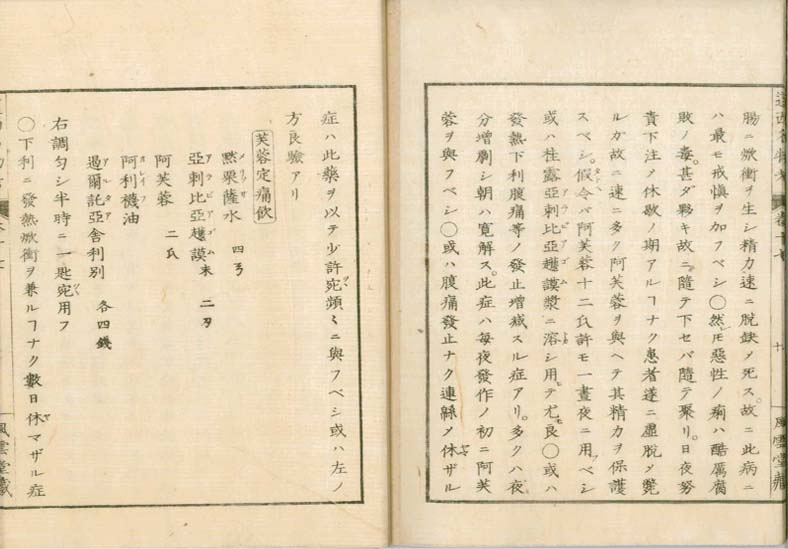 腸ニ焮衝ヲ生シ精力速ニ脱缺メ死ス。故ニ此病ニ
ハ最モ戒慎ヲ加フベシ〇然レ𪜈惡性ノ痢ハ酷厲腐
敗ノ毒。甚ダ夥キ故ニ。隨テ下セバ隨テ聚リ。日夜努
責下注メ休歇ノ期アルヿナク患者遂ニ虛脱メ斃
ルガ故ニ速ニ多ク阿芙蓉ヲ與ヘテ其精力ヲ保護
スベシ。假令バ阿芙蓉十二氏許モ一晝夜ニ用フベシ
或ハ桂露亞剌比亞護謨漿ニ溶シ用ヒテ尤モ良〇或ハ
發熱下利腹痛等ノ發止増減スル症アリ。多クハ夜
分増劇シ朝ハ寛解ス。此症ハ毎夜發作ノ初ニ阿芙
蓉ヲ與フベシ〇或ハ腹痛發止ナク連綿メ休ザル
風雲堂藏
症ハ此藥ヲ以テ少許宛頻〻ニ與フベシ或ハ左ノ
方良驗アリ
芙蓉定痛飲
黙栗薩水 四弓
亞剌比亞護謨末 二刃
阿芙蓉 二氏
阿利機油
過爾託亞舍利別 各四錢
右調勻シ半時ニ一匙宛用フ
〇下利ニ發熱焮衝ヲ兼ルヿナク數日休マザル症
風雲堂藏